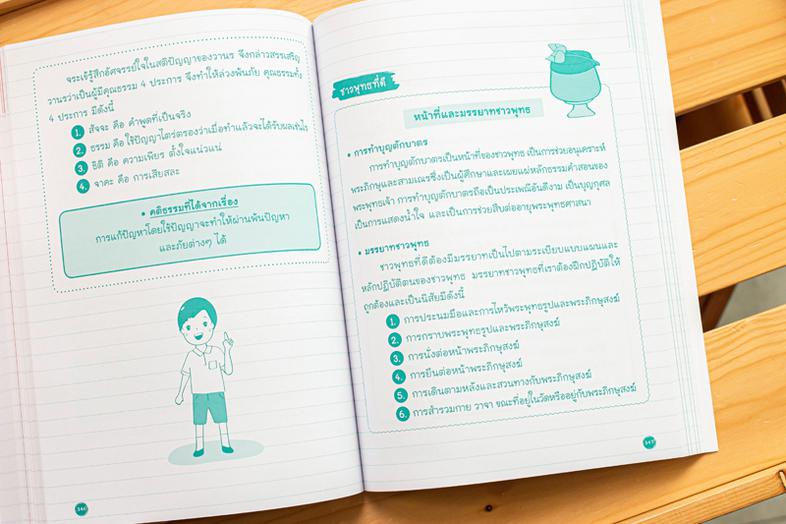 จระเข้รู้สึกอัศจรรย์ใจในสติปัญญาของวานร จึงกล่าวสรรเสริญ
วานรว่าเป็นผู้มีคุณธรรม 4 ประการ จึงทำให้ล่วงพ้นภัย คุณธรรมทั้ง
4 ประการ มีดังนี้
1. สัจจะ คือ คำพูดที่เป็นจริง
2. ธรรม คือ ใช้ปัญญาไตร่ตรองว่าเมื่อทำแล้วจะได้รับผลเช่นไร
3. ธิติ คือ ความเพียร ตั้งใจแน่วแน่
4. จาคะ คือ การเสียสละ
• คติธรรมที่ได้จากเรื่อง
การแก้ปัญหาโดยใช้ปัญญาจะทำให้ผ่านพ้นปัญหา
และภัยต่างๆ ได้
ชาวพุทธที่ดี
หน้าที่และมรรยาทชาวพุทธ
• การทำบุญตักบาตร
การทำบุญตักบาตรเป็นหน้าที่ของชาวพุทธ เป็นการช่วยอนุเคราะห์
พระภิกษุและสามเณรซึ่งเป็นผู้ศึกษาและเผยแผ่หลักธรรมคำสอนของ
พระพุทธเจ้า การทำบุญตักบาตรถือเป็นประเพณีอันดีงาม เป็นบุญกุศล
เป็นการแสดงน้ำใจ และเป็นการช่วยสืบต่ออายุพระพุทธศาสนา
• มรรยาทชาวพุทธ
ชาวพุทธที่ดีต้องมีมรรยาทเป็นไปตามระเบียบแบบแผนและ
หลักปฏิบัติตนของชาวพุทธ มรรยาทชาวพุทธที่เราต้องฝึกปฏิบัติให้
ถูกต้องและเป็นนิสัยมีดังนี้
1. การประนมมือและการไหว้พระพุทธรูปและพระภิกษุสงฆ์
2. การกราบพระพุทธรูปและพระภิกษุสงฆ์
3. การนั่งต่อหน้าพระภิกษุสงฆ์
4. การยืนต่อหน้าพระภิกษุสงฆ์
5. การเดินตามหลังและสวนทางกับพระภิกษุสงฆ์
6. การสำรวมกาย วาจา ขณะที่อยู่ในวัดหรืออยู่กับพระภิกษุสงฆ์